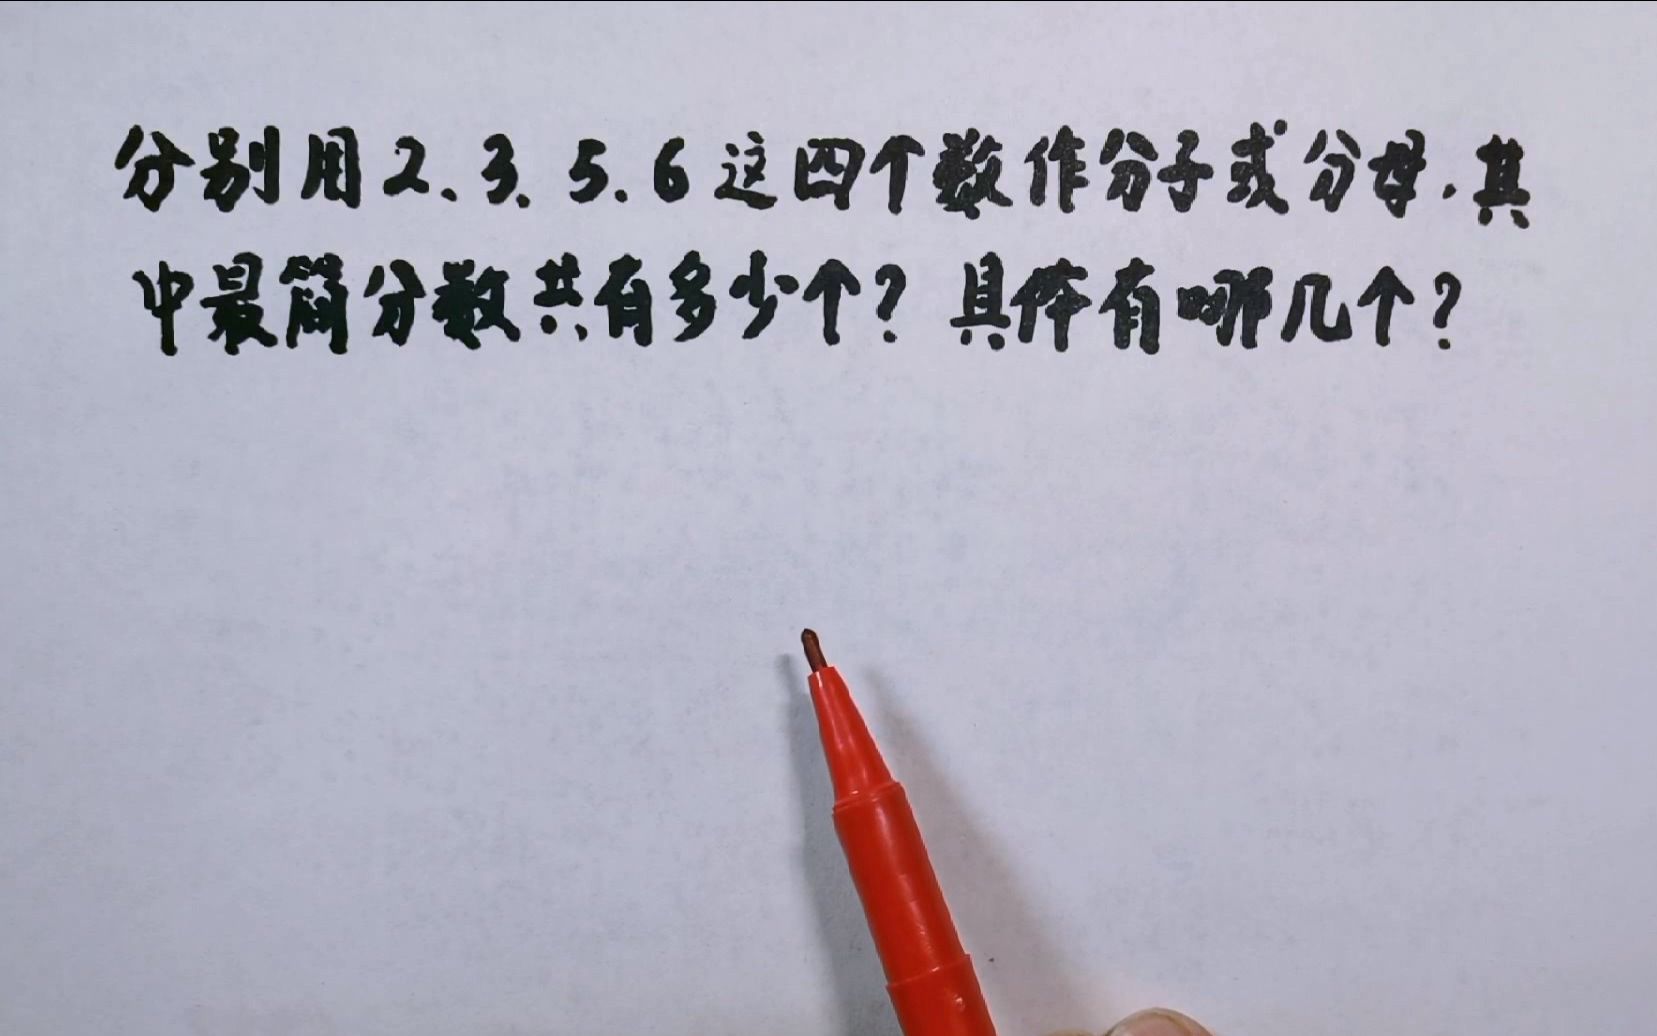 分别用2、3、5、6这四个数作分子或分母,其
中最简分数共有多少个?具体有哪几个?